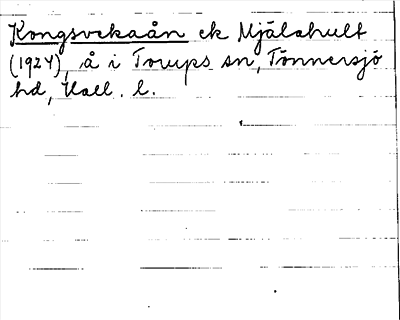 Kongsvekaån ek Mjälahult
(1924), å i Torups sn, Tönnersjö
hd, Hall. l.